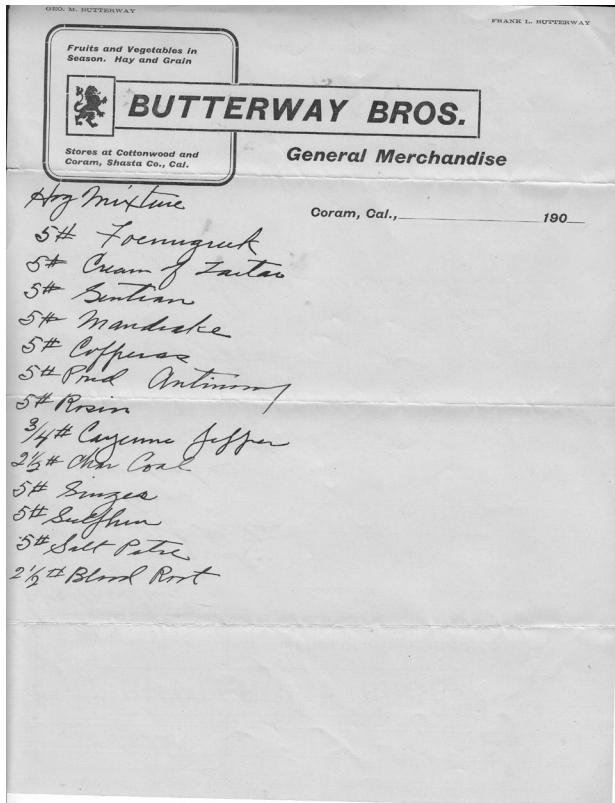 GEO. M. BUTTERWAY
FRANK L. BUTTERWAY
Fruits and Vegetables in
Season. Hay and Grain
BUTTERWAY BROS.
Stores at Cottonwood and
Coram, Shasta Co., Cal.
General Merchandise
Coram, Cal., 190
Hog Mixture
5# Foenugreek
5# Cream of Tartar
5# Gentian
5# Mandrake
5# Copperas
5# Pwd Antimony
5# Rosin
3/4# Cayenne Pepper
2 1/2# Char Coal
5# Ginger
5# Sulphur
5# Salt Petre
2 1/2# Blood Root